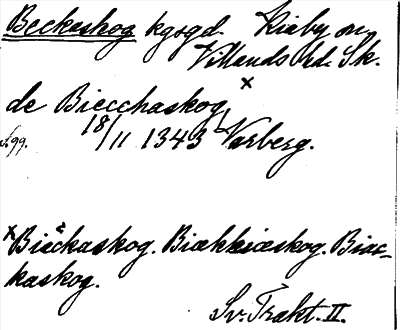 Beckaskog kgsgd. Kiaby sn
Villands hd. Sk.
x
de Biecchaskog
s. 99. 18/11 1343 Varberg.
x Biečkaskog. Biækkiæskog. Biac-
kaskog.
Sv. Trakt. II.